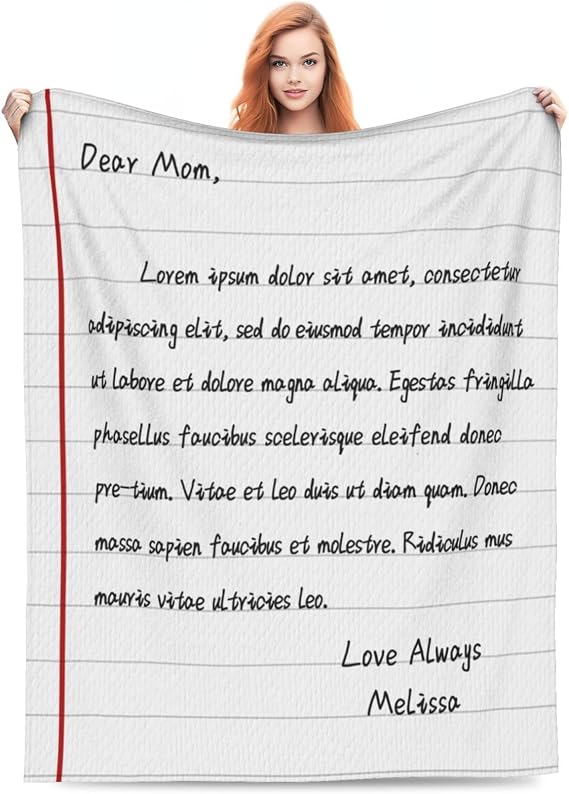 Dear Mom,
Lorem ipsum dolor sit amet, consectetur
adipiscing elit, sed do eiusmod tempor incididunt
ut labore et dolore magna aliqua. Egestas fringilla
phasellus faucibus scelerisque eleifend donec
pre-tium. Vitae et leo duis ut diam quam. Donec
massa sapien faucibus et molestre. Ridiculus mus
mauris vitae ultricies leo.
Love Always
Melissa